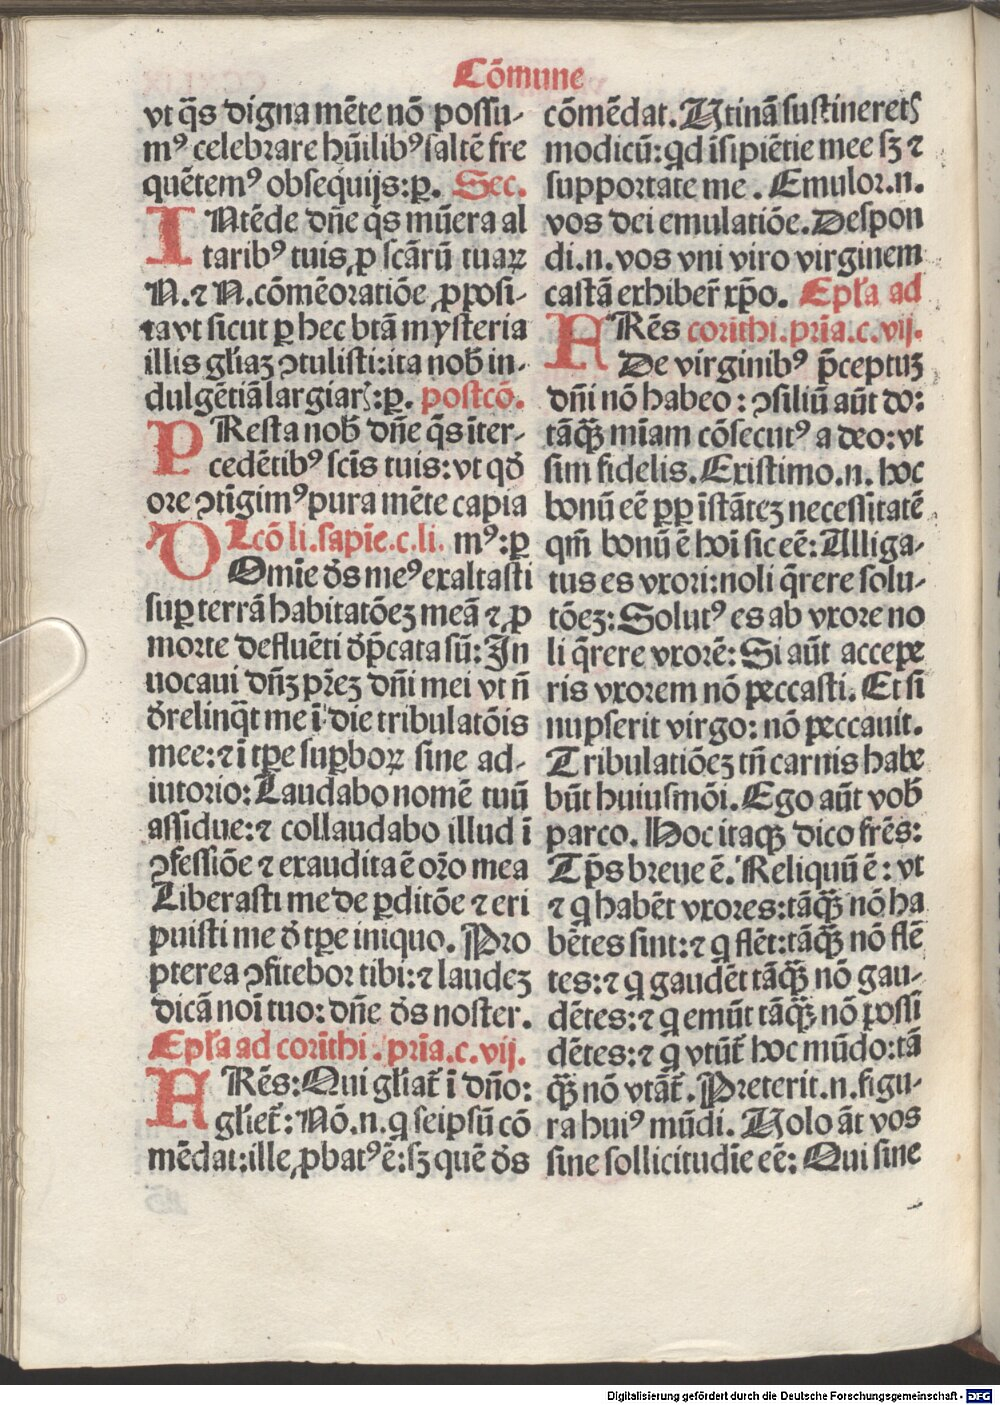 Cōmune
vt q̄s digna mēte nō possu-
mꝰ celebrare hūilibꝰ saltē fre
quētemꝰ obsequijs: p̱. Sec.
INtēde dn̄e q̄s mūera al
taribꝰ tuis ꝓ scārū tuaꝝ
N. ⁊ N. cōmēoratiōe ꝓposi-
ta vt sicut ꝑ hec btā mysteria
illis gl̄iaꝫ ꝯtulisti: ita nob̄ in-
dulgētiā largiar̄: p̱. postcō.
PResta nob̄ dn̄e q̄s īter-
cedētibꝰ scīs tuis: vt qđ
ore ꝯtīgimꝰ pura mēte capia
Lcō li. sapīe. c. li. mꝰ: p̱
DOmīe đs meꝰ exaltasti
suꝑ terrā habitatōeꝫ meā ⁊ ꝓ
morte defluēti đp̄cata sū: In
uocaui dn̄ꝫ pr̄eꝫ dn̄i mei vt n̄
đrelinq̄t me ī die tribulatōis
mee: ⁊ ī tꝑe suꝑboꝝ sine ad-
iutorio: Laudabo nomē tuū
assidue: ⁊ collaudabo illud ī
ꝯfessiōe ⁊ exaudita ē or̄o mea
Liberasti me de ꝑditōe ⁊ eri
puisti me đ tꝑe iniquo. Pro
pterea ꝯfitebor tibi: ⁊ laudeꝫ
dicā noīi tuo: dn̄e đs noster.
Epl̄a ad corīthi. pria. c. vij.
FRēs: Qui gl̄iat̄ ī dn̄o:
gl̄iet̄: Nō. n. q seipsū cō
mēdat: ille ꝓbatꝰ ē: sꝫ quē đs
cōmēdat. Utinā sustineretꝭ
modicū: qd īsipiētie mee sꝫ ⁊
supportate me. Emulor. n.
vos dei emulatiōe. Despon
di. n. vos vni viro virginem
castā exhiber̄ xp̄o. Epl̄a ad
FRēs corithi. pria. c. vij.
De virginibꝰ p̄ceptuꝫ
dn̄i nō habeo: ꝯsiliū aūt do:
tāq̄ꝫ miam cōsecutꝰ a deo: vt
sim fidelis. Existimo. n. hoc
bonū eē ꝓꝑ īstāteꝫ necessitatē
qm̄ bonū ē hoī sic eē: Alliga-
tus es vxori: noli q̄rere solu-
tōeꝫ: Solutꝰ es ab vxore no
li q̄rere vxorē: Si aūt accepe
ris vxorem nō peccasti. Et si
nupserit virgo: nō peccauit.
Tribulatiōeꝫ tn̄ carnis habe
būt huiusmōi. Ego aūt vob̄
parco. Hoc itaqꝫ dico frēs:
Tp̄s breue ē. Reliquū ē: vt
⁊ q habēt vxores: tāq̄ꝫ nō ha
bētes sint: ⁊ q flēt: tāq̄ꝫ nō flē
tes: ⁊ q gaudēt tāq̄ꝫ nō gau-
dētes: ⁊ q emūt tāq̄ꝫ nō possi
dētes: ⁊ q vtūt̄ hoc mūdo: tā
q̄ꝫ nō vtāt̄. Preterit. n. figu-
ra huiꝰ mūdi. Uolo āt vos
sine sollicitudīe eē: Qui sine
Digitalisierung gefördert durch die Deutsche Forschungsgemeinschaft - DFG